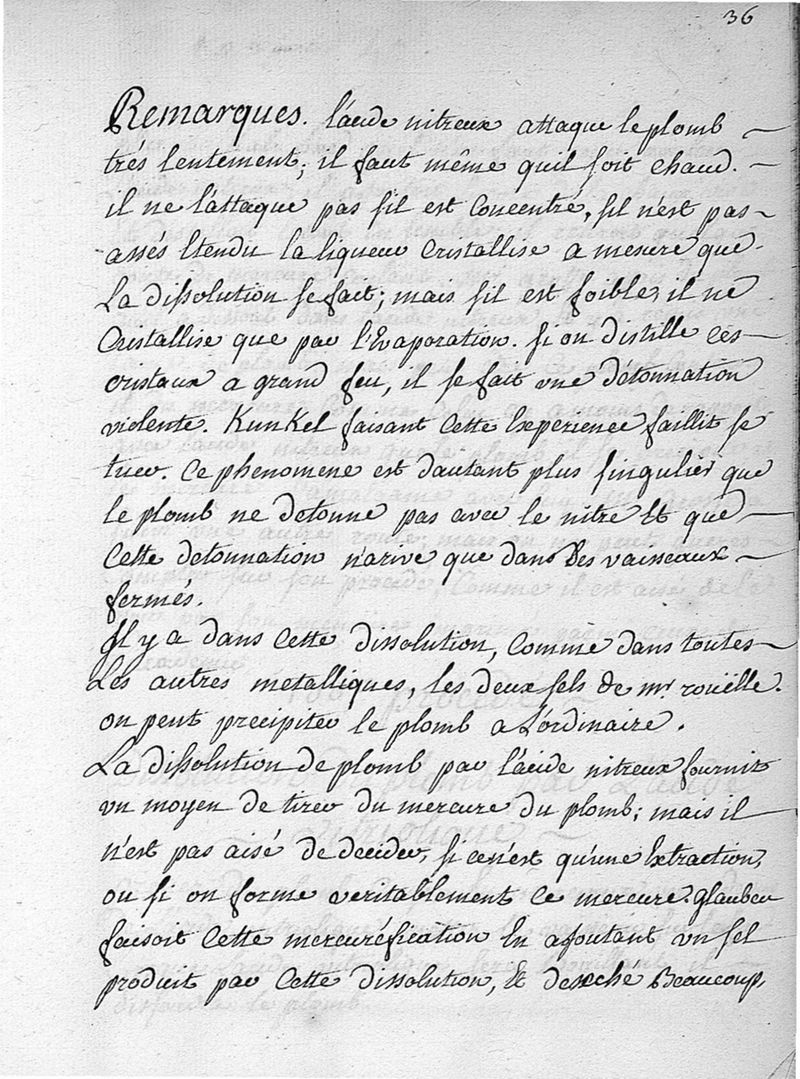 36
Remarques. l'acide nitreux attaque le plomb
très lentement; il faut même quil soit chaud.
il ne l'attaque pas sil est concentré, sil n'est pas
assés Etendu la liqueur cristallise a mesure que
La dissolution se fait; mais sil est foible, il ne
Cristallise que par l'Evaporation. si on distille ces
cristaux a grand feu, il se fait une détonnation
violente. Kunkel faisant Cette Experience faillit se
tuer. Ce phenomene est dautant plus singulier que
le plomb ne detonne pas avec le nitre Et que
Cette detonnation n'arive que dans des vaisseaux
fermés.
Il y a dans Cette dissolution, Comme dans toutes
Les autres metalliques, les deux sels de mr. roüelle.
on peut précipiter le plomb a L'ordinaire.
La dissolution de plomb par l'acide nitreux fournit
un moyen de tirer du mercure du plomb; mais il
n'est pas aisé de decider, si ce n'est qu'une Extraction,
ou si on forme veritablement ce mercure. glauber
faisoit Cette mercuréfication En ajoutant un sel
produit par Cette dissolution, & deseché Beaucoup,